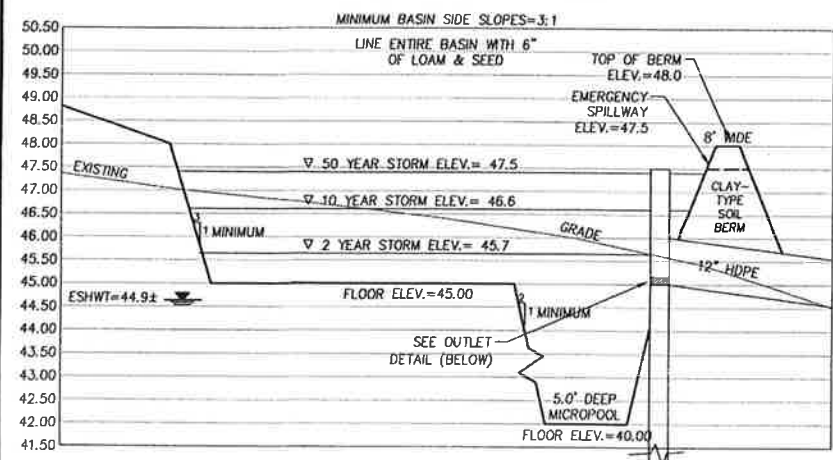 MINIMUM BASIN SIDE SLOPES=3:1
LINE ENTIRE BASIN WITH 6"
OF LOAM & SEED
TOP OF BERM
ELEV.=48.0
EMERGENCY
SPILLWAY
ELEV.=47.5
8' WIDE
50.50
50.00
49.50
49.00
48.50
48.00
47.50
47.00
46.50
46.00
45.50
45.00
44.50
44.00
43.50
43.00
42.50
42.00
41.50
EXISTING
50 YEAR STORM ELEV.= 47.5
10 YEAR STORM ELEV.= 46.6
CLAY-
TYPE
SOIL
BERM
3
1 MINIMUM
GRADE
2 YEAR STORM ELEV.= 45.7
12" HDPE
ESHWT=44.9±
FLOOR ELEV.=45.00
2
1 MINIMUM
SEE OUTLET
DETAIL (BELOW)
5.0' DEEP
MICROPOOL
FLOOR ELEV.=40.00